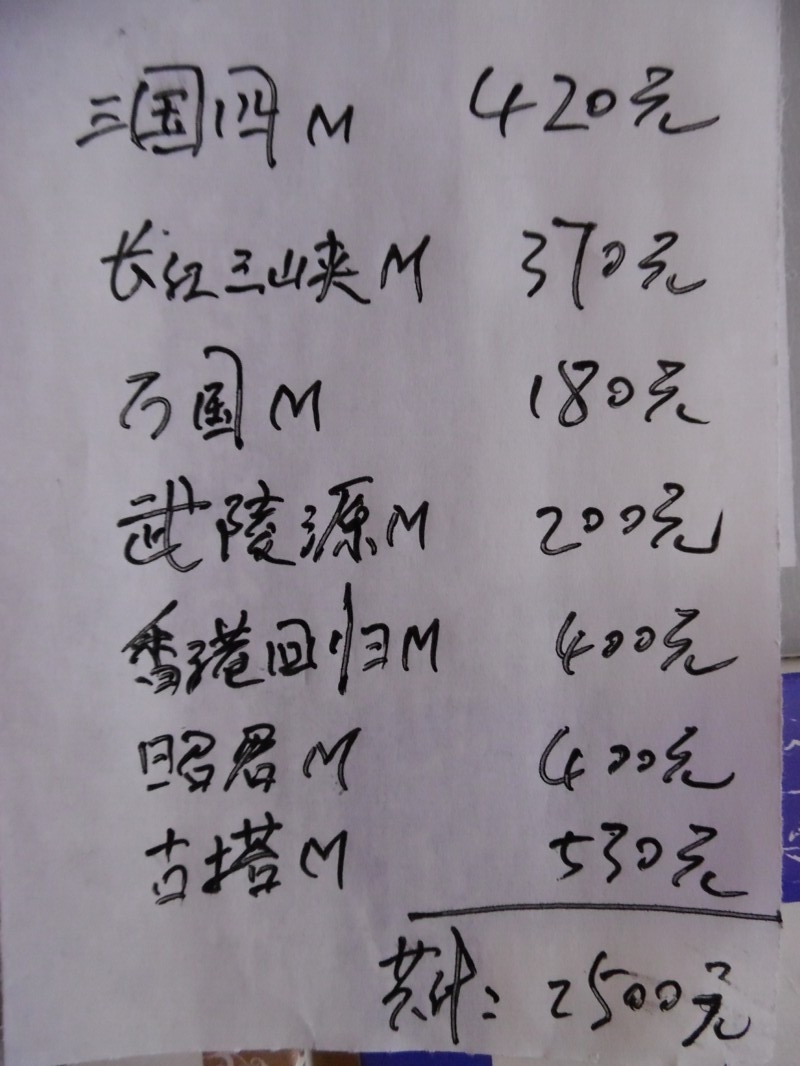 三国四M 420元
长江三峡M 370元
万国M 180元
武陵源M 200元
香港回归M 400元
昭君M 400元
古塔M 530元
共计: 2500元